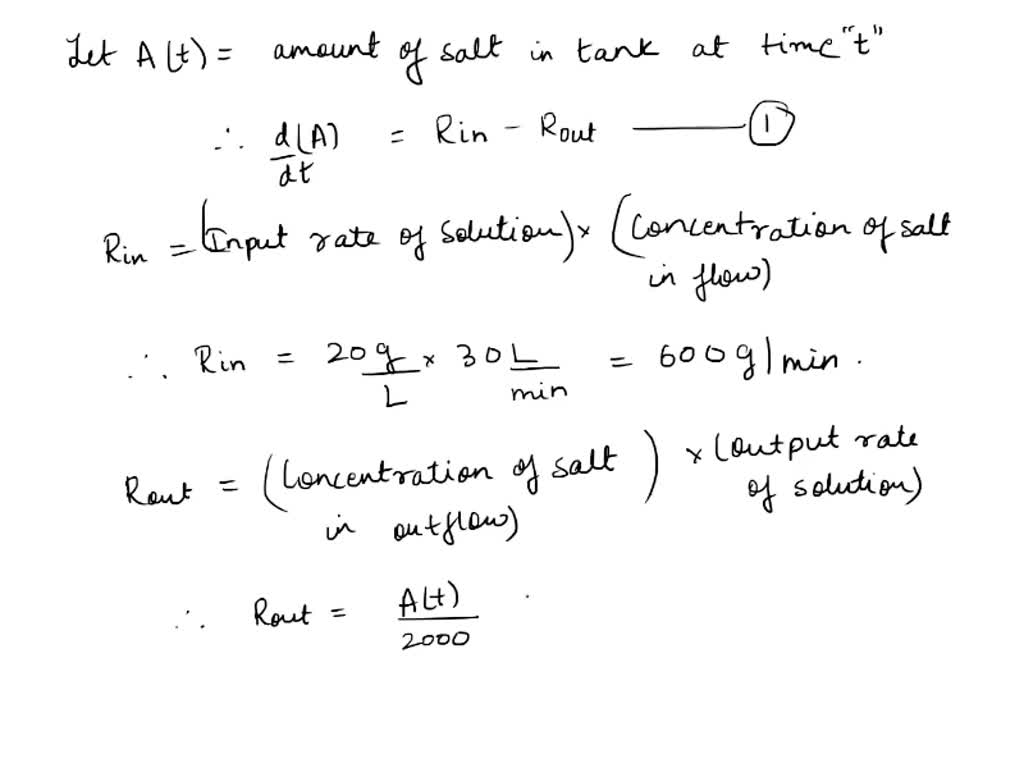 Let A(t) = amount of salt in tank at time "t"
∴ d(A)/dt = Rin - Rout ——— ①
Rin = (Input rate of solution) × (Concentration of salt
in flow)
∴ Rin = 20 g/L × 30 L/min = 600 g/min.
Rout = (Concentration of salt in outflow) × (output rate of solution)
∴ Rout = A(t)/2000